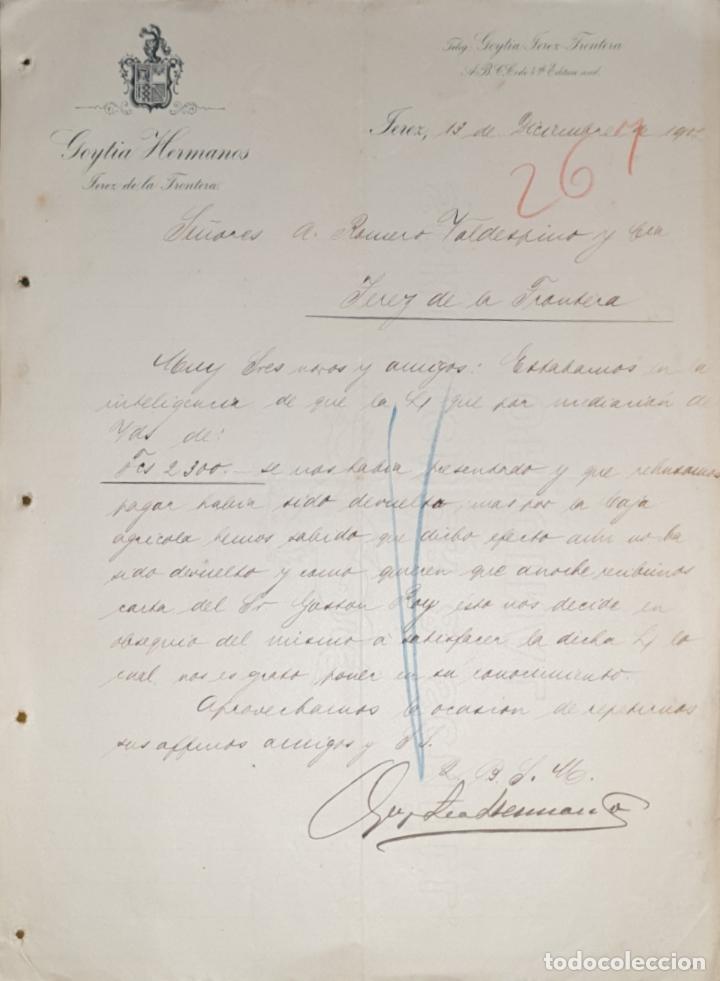 Teleg. Goytia-Jerez-Frontera
A.B.C. Code 4th Edition used.
Goytia Hermanos
Jerez de la Frontera
Jerez, 13 de Diciembre de 190
267
Señores A. Romero Valdespino y Cia
Jerez de la Frontera
Muy Sres nros y amigos: Estabamos en la
inteligencia de que la L/ que por mediación de
Vds de:
Fcs 2300.— se nos había presentado y que rehusamos
pagar había sido devuelta, mas por la Caja
agrícola hemos sabido que dicho efecto aun no ha
sido devuelto y como quieren que anoche recibimos
carta del Sr Gaston Roy esto nos decide en
obsequio del mismo a satisfacer la dicha L/ lo
cual nos es grato poner en su conocimiento.
Aprovechamos la ocasión de repetirnos
sus affmos amigos y SS.
Q. B. S. M.
Goytia Hermanos
todocoleccion